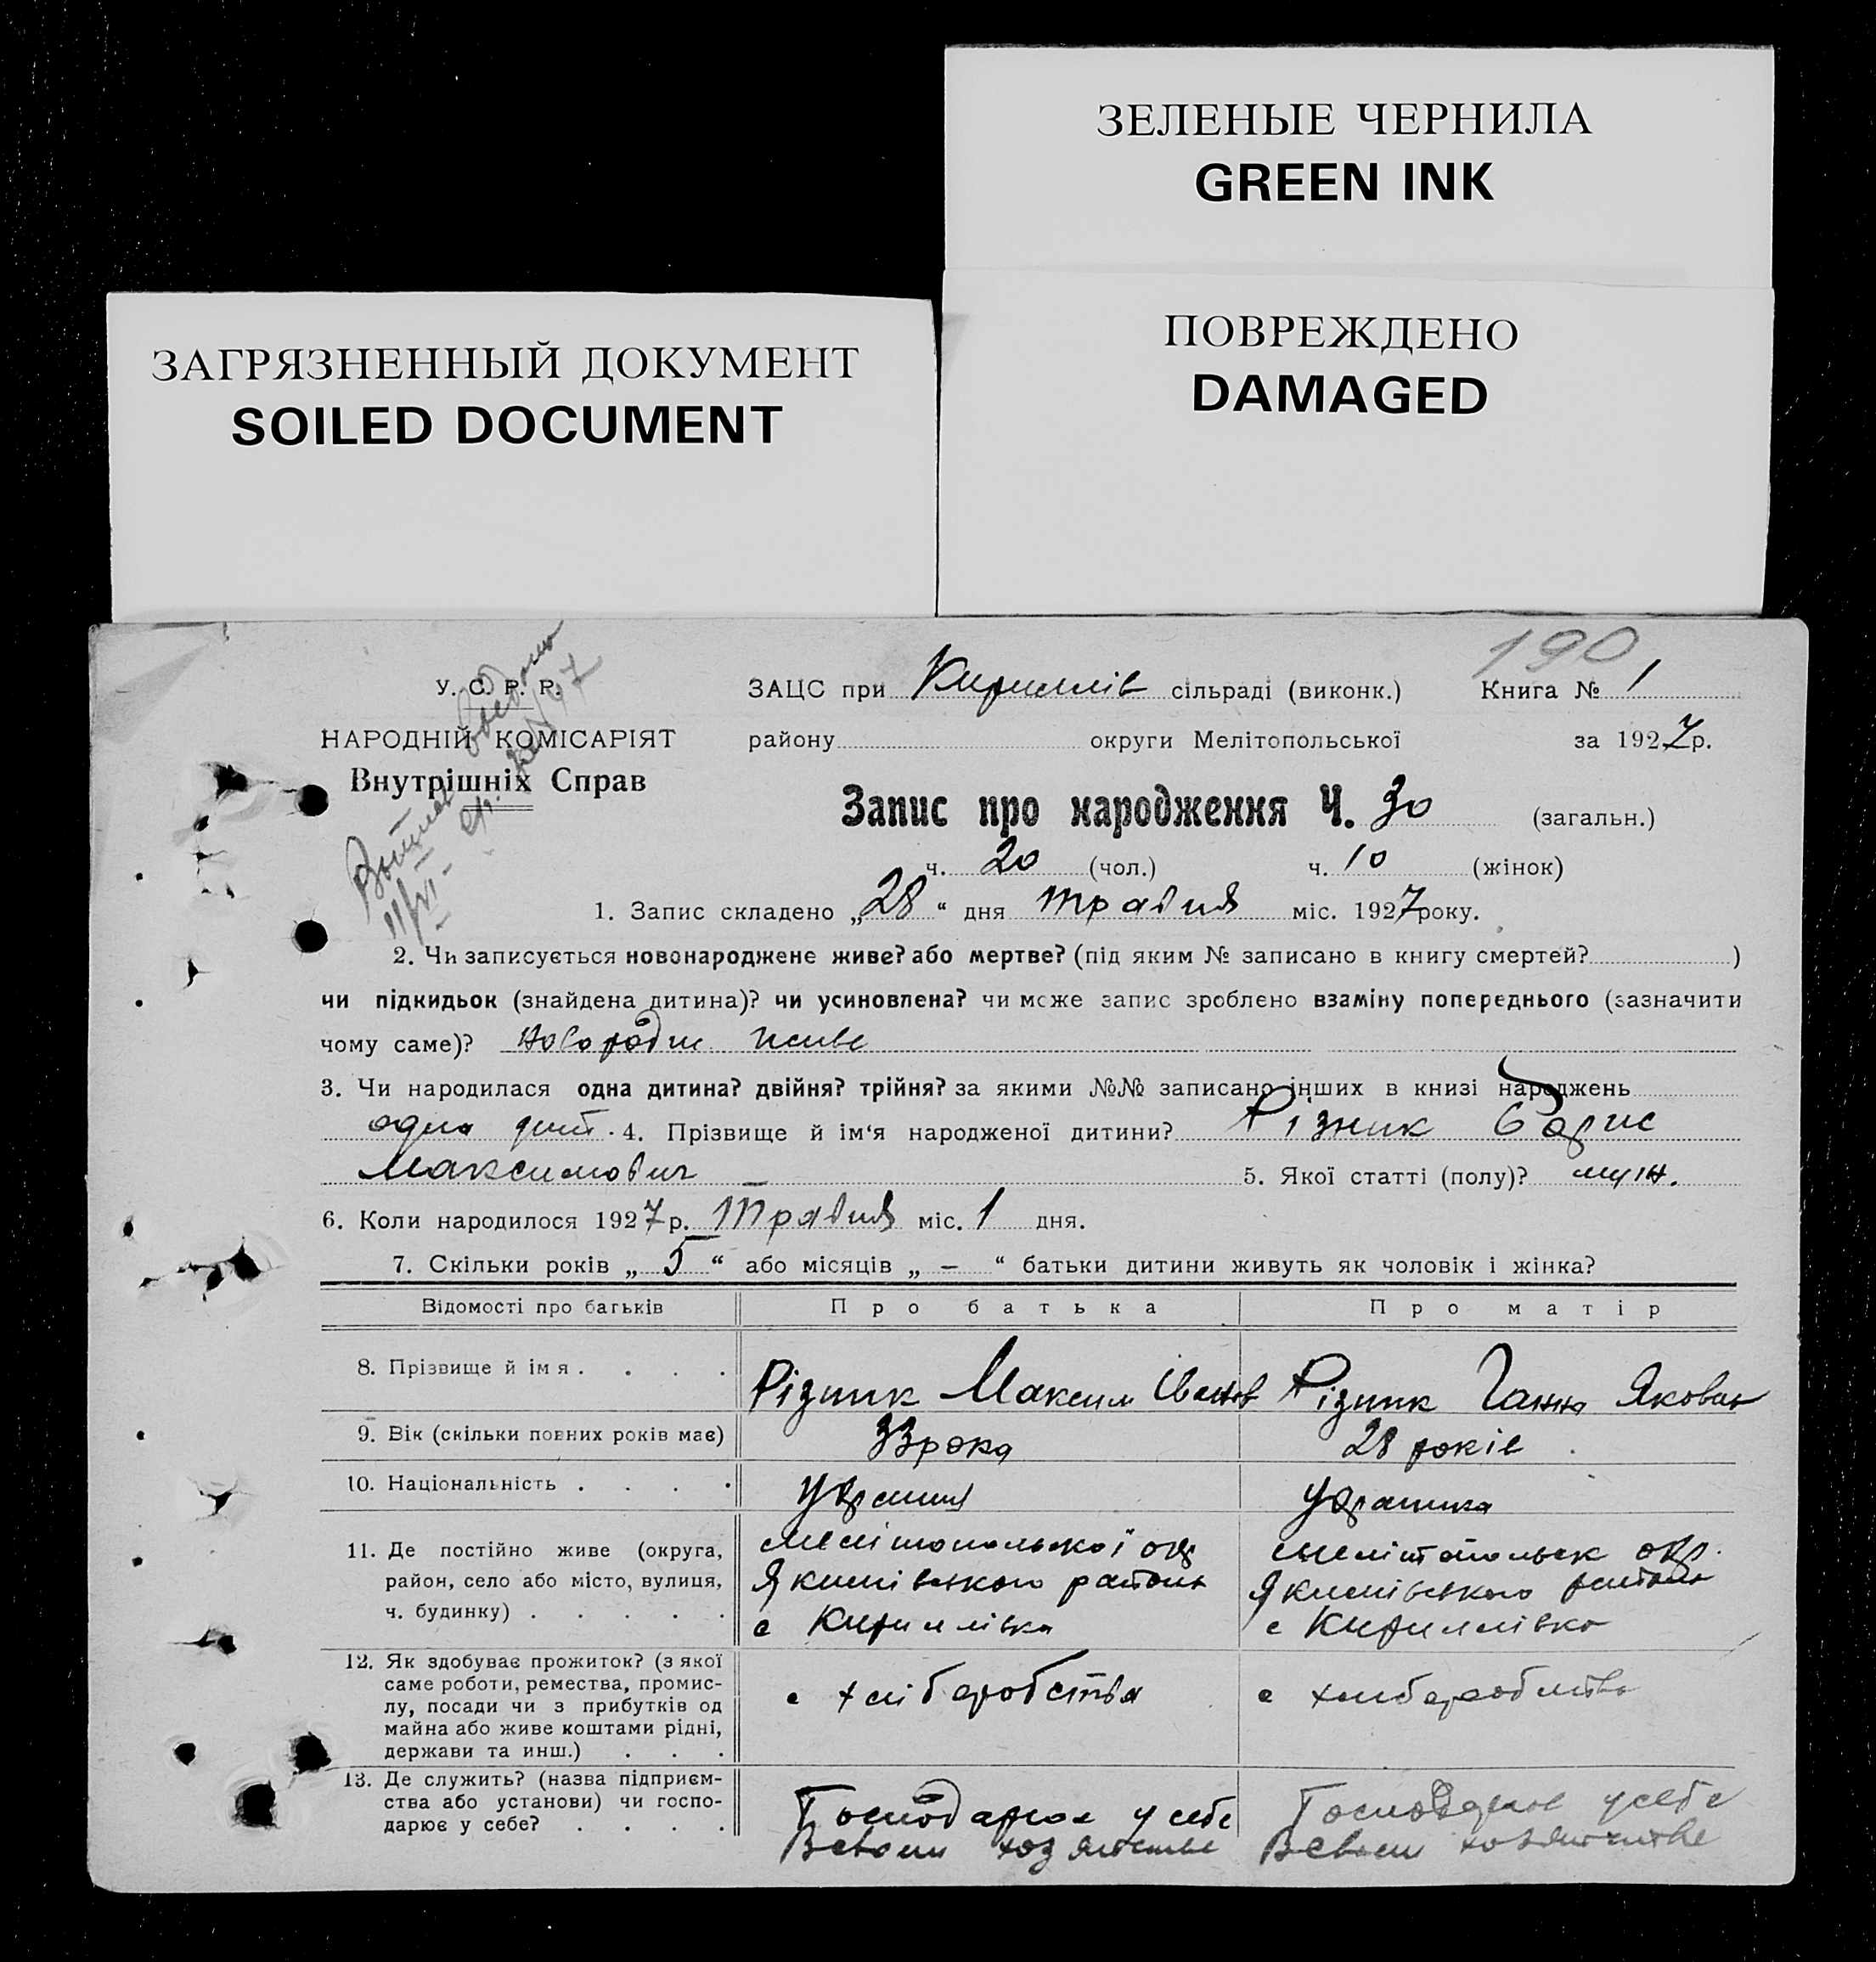 ЗЕЛЕНЫЕ ЧЕРНИЛА
GREEN INK
ПОВРЕЖДЕНО
DAMAGED
ЗАГРЯЗНЕННЫЙ ДОКУМЕНТ
SOILED DOCUMENT
190
У. С. Р. Р.
НАРОДНІЙ КОМІСАРІЯТ
Внутрішніх Справ
11/VI
ЗАЦС при Кириллів сільраді (виконк.) Книга № 1
району округи Мелітопольської за 1927 р.
Запис про народження Ч. 30 (загальн.)
ч. 20 (чол.) ч. 10 (жінок)
1. Запис складено „28“ дня травня міс. 1927 року.
2. Чи записується новонароджене живе? або мертве? (під яким № записано в книгу смертей? )
чи підкидьок (знайдена дитина)? чи усиновлена? чи може запис зроблено взаміну попереднього (зазначити
чому саме)? живе
3. Чи народилася одна дитина? двійня? трійня? за якими №№ записано інших в книзі народжень
одна дит. 4. Прізвище й ім'я народженої дитини? Різник Борис
Максимович 5. Якої статті (полу)? муж.
6. Коли народилося 1927 р. Травня міс. 1 дня.
7. Скільки років „5“ або місяців „ – “ батьки дитини живуть як чоловік і жінка?
Відомості про батьків Про батька Про матір
8. Прізвище й імя . . . . Різник Максим Іванов Різник Ганна Яковл
9. Вік (скільки повних років має) 33 рока 28 років
10. Національність . . . . Україн Українка
11. Де постійно живе (округа, Мелітопольської окр Мелітопольск окр.
район, село або місто, вулиця, Якимівського района Якимівського района
ч. будинку) . . . . . с Кириллівка с Кириллівка
12. Як здобуває прожиток? (з якої
саме роботи, ремества, промис-
лу, посади чи з прибутків од с хліборобства с хлиборобства
майна або живе коштами рідні,
держави та инш.) . . .
13. Де служить? (назва підприєм-
ства або установи) чи госпо- Господарює у себе Господарює у себе
дарює у себе? . . . . В своем хозяйстве В своем хозяйстве